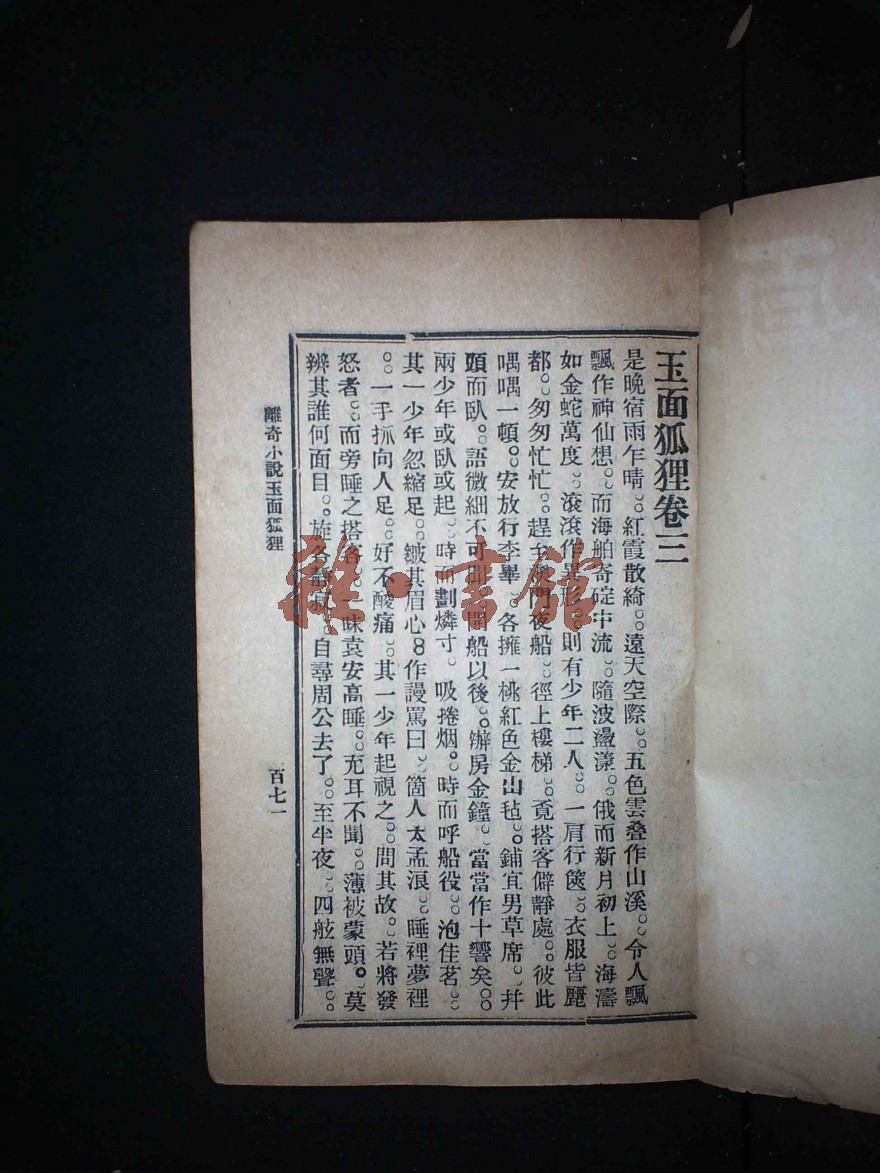 玉面狐狸卷三
是晚宿雨乍晴。紅霞散綺。遠天空際。五色雲叠作山溪。令人飄
飄作神仙想。而海舶寄碇中流。隨波盪漾。俄而新月初上。海濤
如金蛇萬度。滾滾作異形。則有少年二人。一肩行篋。衣服皆麗
都。匆匆忙忙。趕至 門夜船。徑上樓梯。覔搭客僻靜處。彼此
喁喁一頓。安放行李畢。各擁一桃紅色金山毡。鋪宜男草席。幷
頭而臥。語微細不可 。開船以後。辦房金鐘。當當作十響矣。
兩少年或臥或起。時而劃燐寸。吸捲烟。時而呼船役。泡佳茗。
其一少年忽縮足。皺其眉心。作謾罵曰。箇人太孟浪。睡裡夢裡
。一手抓向人足。好不酸痛。其一少年起視之。問其故。若將發
怒者。而旁睡之搭客。一味袁安高睡。充耳不聞。薄被蒙頭。莫
辨其誰何面目。旋各 。自尋周公去了。至半夜。四舷無聲。
離奇小說玉面狐狸
百七一
雜·書館